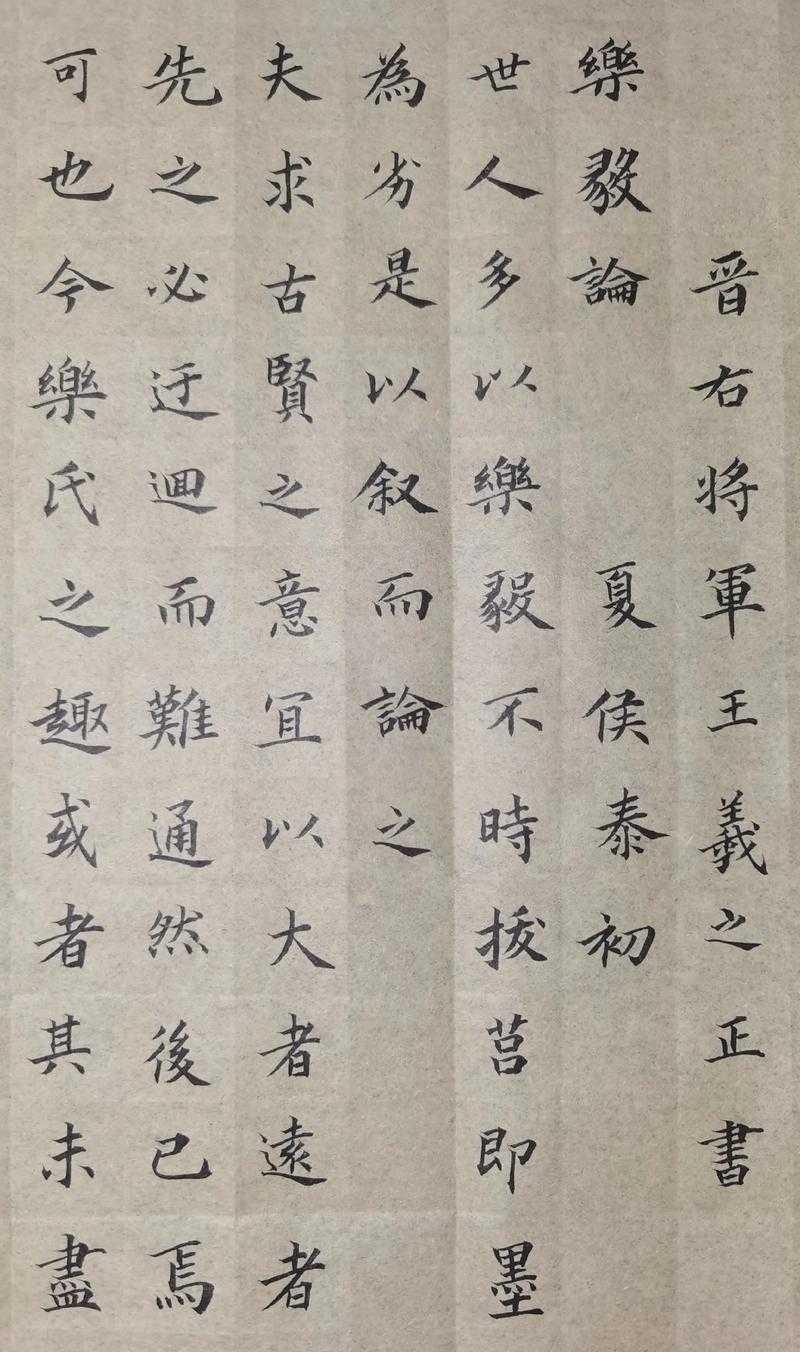 晋右将軍王羲之正書
樂毅論 夏侯泰初
世人多以樂毅不時拔莒即墨
為劣是以叙而論之
夫求古賢之意宜以大者遠者
先之必迂迴而難通然後已焉
可也今樂氏之趣或者其未盡